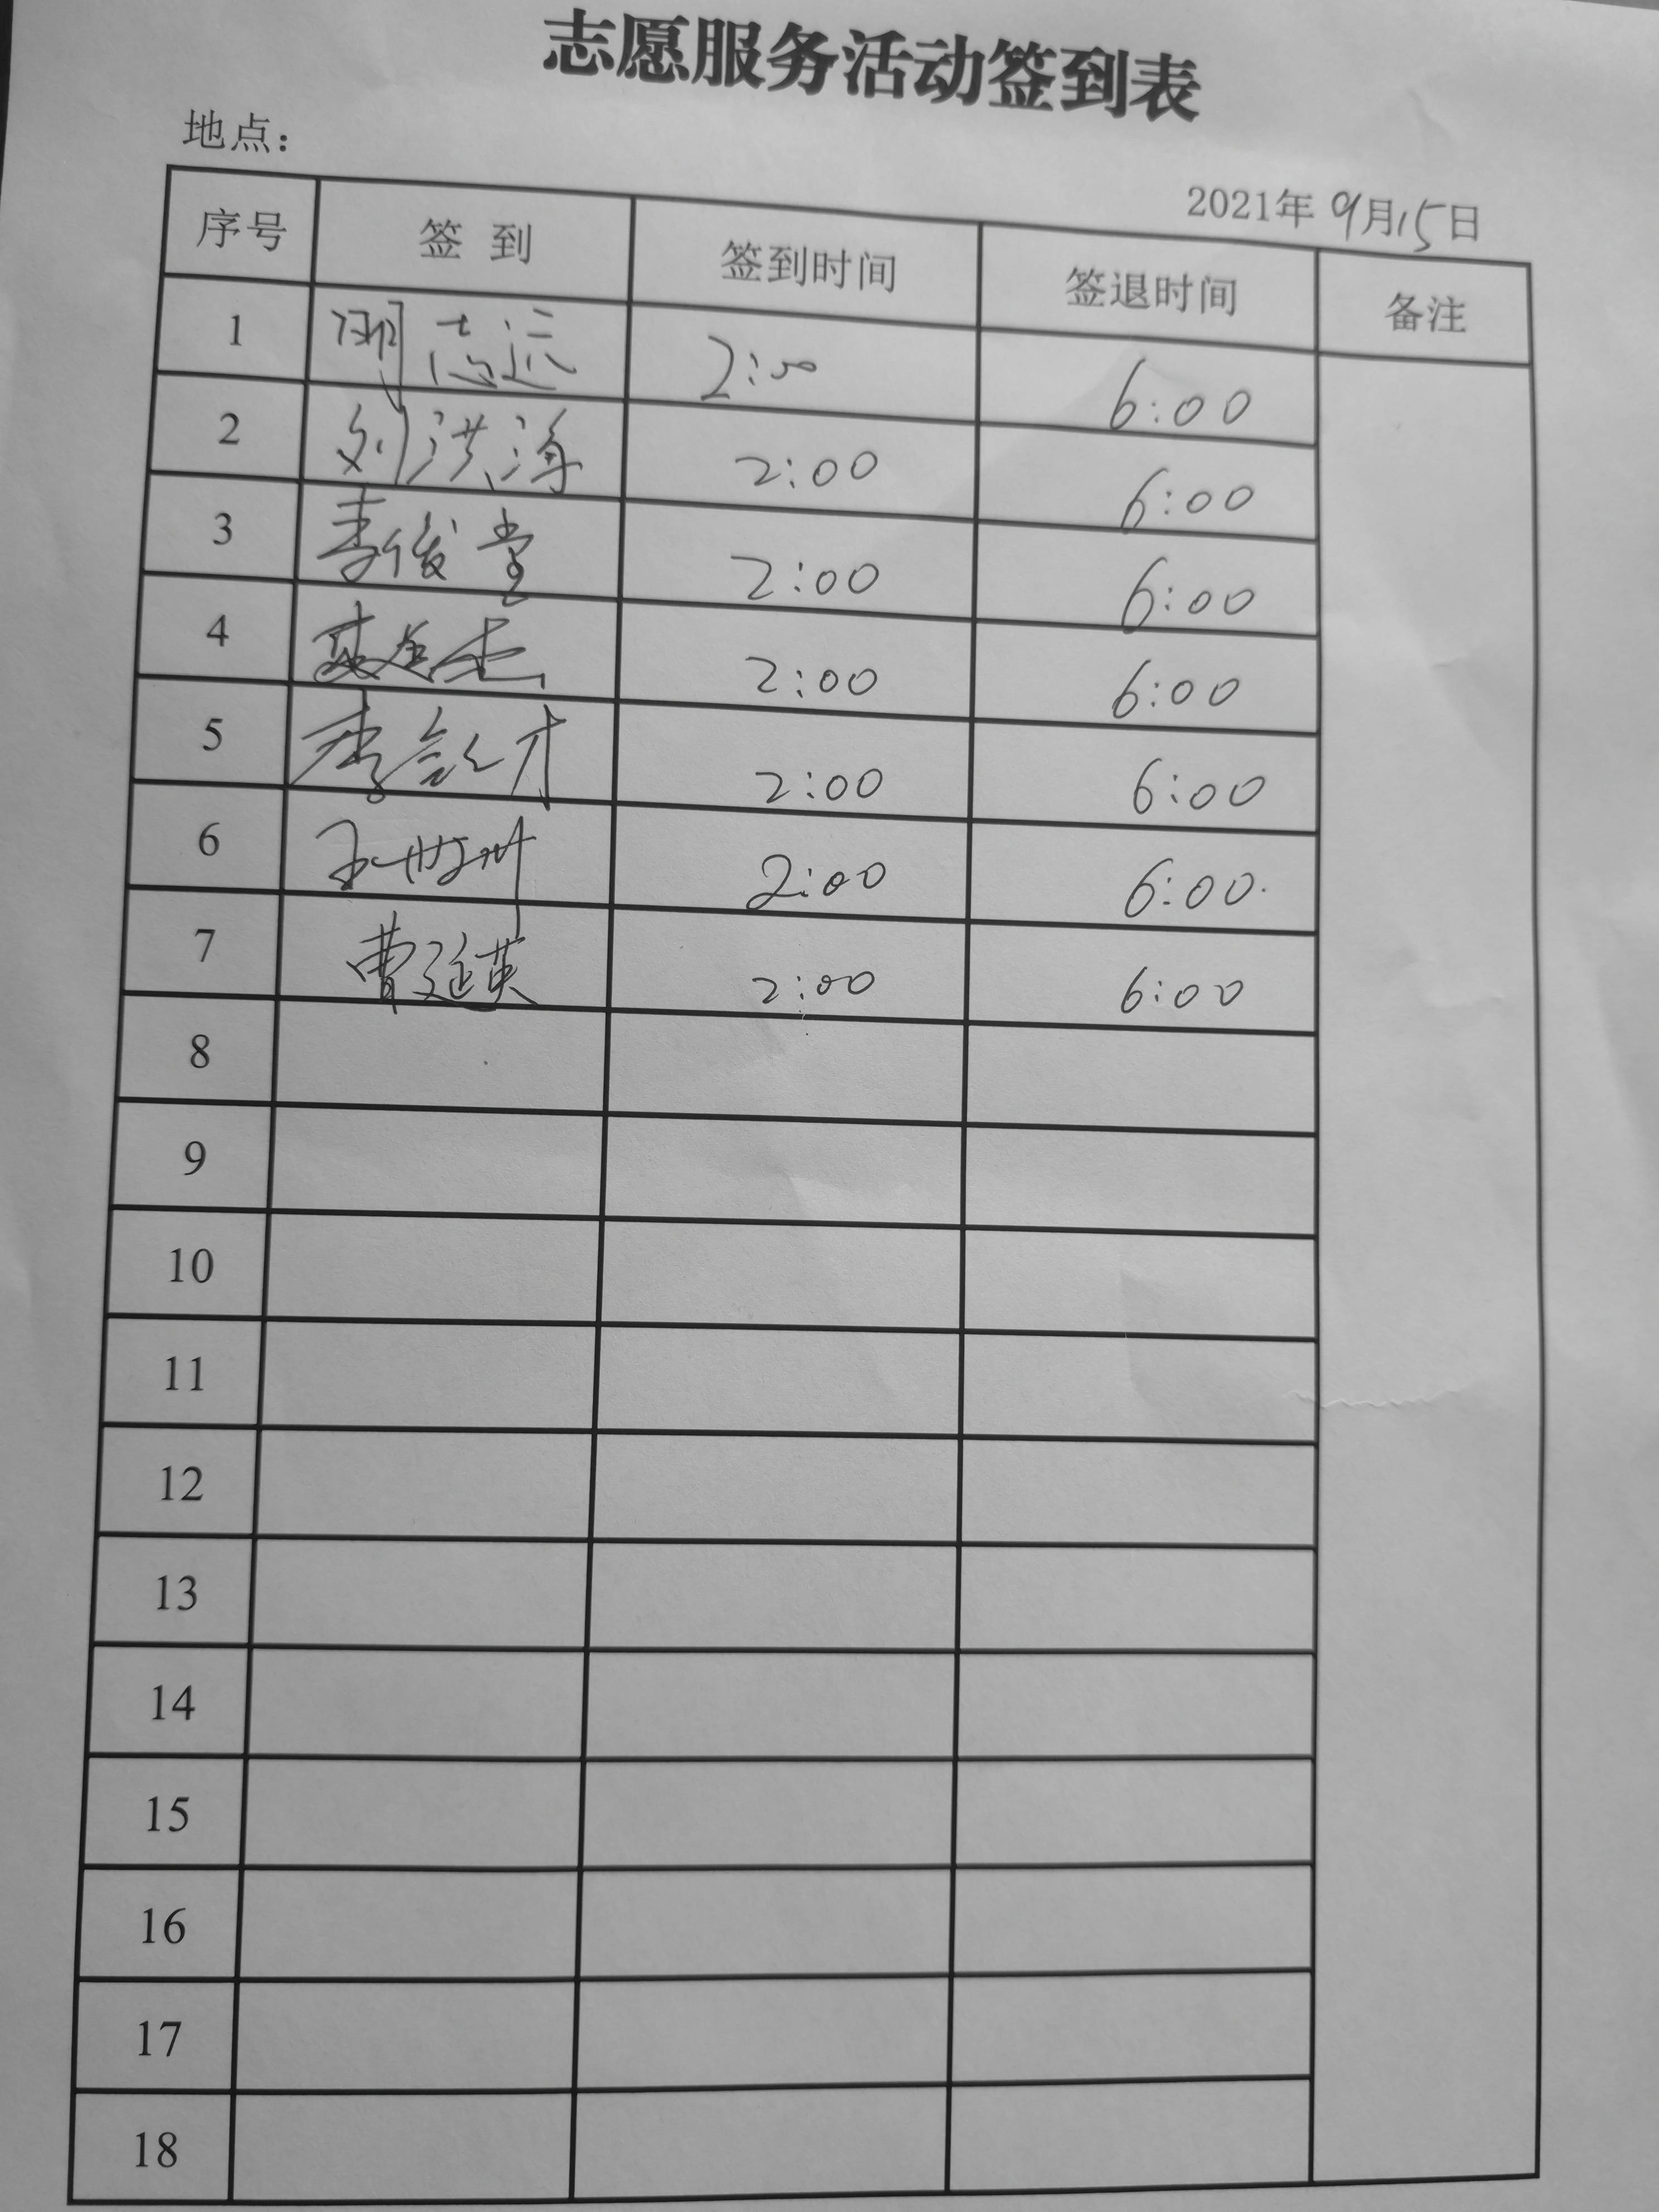 志愿服务活动签到表
地点:
2021年9月15日
序号 签到 签到时间 签退时间 备注
1 志远 2:00 6:00
2 刘洪海 2:00 6:00
3 李俊堂 2:00 6:00
4 2:00 6:00
5 李 才 2:00 6:00
6 王世州 2:00 6:00
7 曹延英 2:00 6:00
8
9
10
11
12
13
14
15
16
17
18